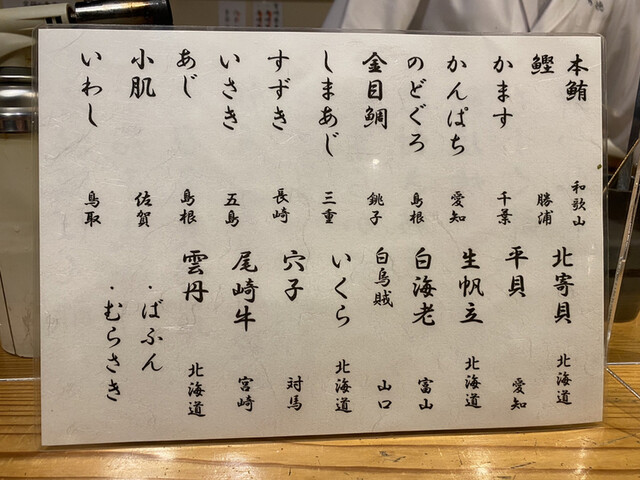 本鮪 和歌山
鰹 勝浦
かます 千葉
かんぱち 愛知
のどぐろ 島根
金目鯛 銚子
しまあじ 三重
すずき 長崎
いさき 五島
あじ 島根
小肌 佐賀
いわし 鳥取
北寄貝 北海道
平貝 愛知
生帆立 北海道
白海老 富山
白烏賊 山口
いくら 北海道
穴子 対馬
尾崎牛 宮崎
雲丹 北海道
・ばふん
・むらさき